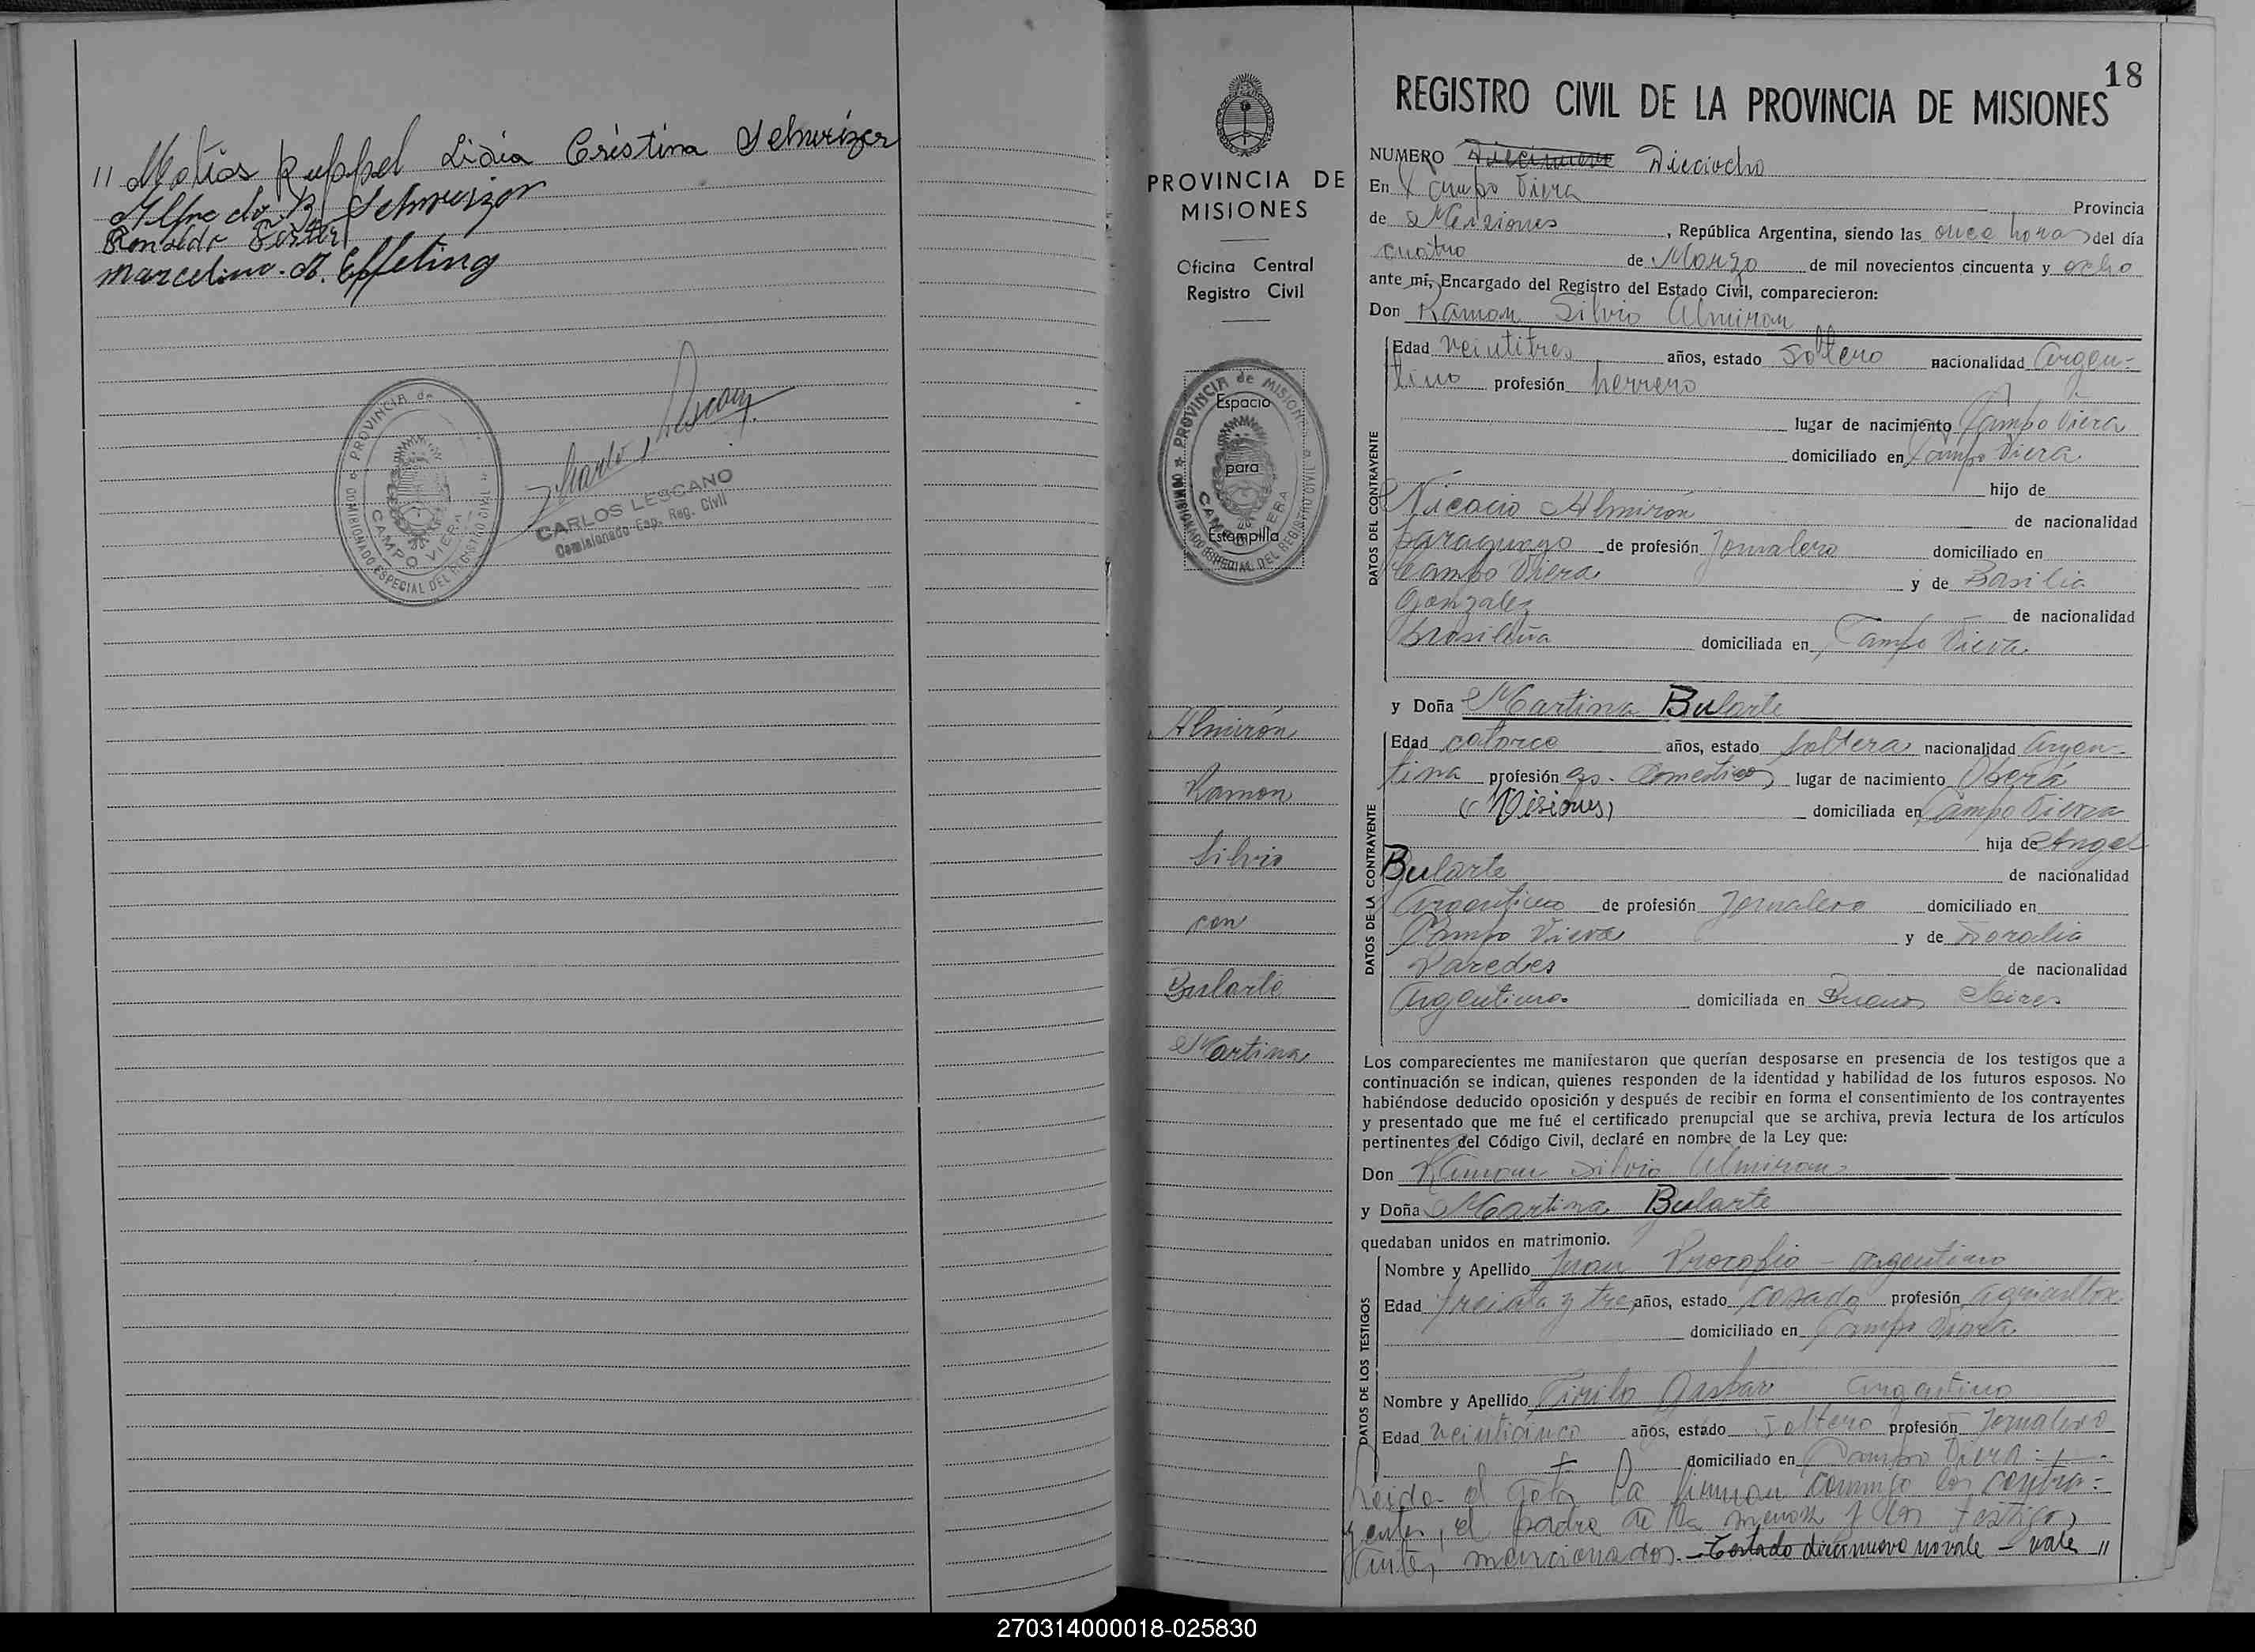 " Matias Ruppel Lidia Cristina Schweizer
Alfredo B. Schweizer
Ronaldo
Marcelino. A. Effeting
PROVINCIA de
CAMPO VIERA
COMISIONADO ESPECIAL DEL REGISTRO CIVIL
CARLOS LESCANO
Comisionado Esp. Reg. Civil
PROVINCIA DE
MISIONES
Oficina Central
Registro Civil
PROVINCIA de MISIONES
Espacio
para
Estampilla
CAMPO VIERA
COMISIONADO ESPECIAL DEL REGISTRO CIVIL
Almirón
Ramon
Silvio
con
Bularte
Martina
18
REGISTRO CIVIL DE LA PROVINCIA DE MISIONES
NUMERO Diecinueve Dieciocho
En Campo Viera Provincia
de Misiones, República Argentina, siendo las once horas del día
cuatro de Marzo de mil novecientos cincuenta y ocho
ante mí, Encargado del Registro del Estado Civil, comparecieron:
Don Ramon Silvio Almiron
DATOS DEL CONTRAYENTE
Edad veintitres años, estado soltero nacionalidad argen-
tino profesión herrero
lugar de nacimiento Campo Viera
domiciliado en Campo Viera
hijo de
Nicacio Almirón de nacionalidad
paraguayo de profesión Jornalero domiciliado en
Campo Viera y de Basilia
Gonzalez de nacionalidad
brasileña domiciliada en Campo Viera
y Doña Martina Bularte
DATOS DE LA CONTRAYENTE
Edad catorce años, estado soltera nacionalidad argen-
tina profesión qs. domesticos lugar de nacimiento Oberá
(Misiones) domiciliada en Campo Viera
hija de Angel
Bularte de nacionalidad
Argentino de profesión Jornalero domiciliado en
Campo Viera y de Doralia
Paredes de nacionalidad
Argentina domiciliada en Buenos Aires
Los comparecientes me manifestaron que querían desposarse en presencia de los testigos que a
continuación se indican, quienes responden de la identidad y habilidad de los futuros esposos. No
habiéndose deducido oposición y después de recibir en forma el consentimiento de los contrayentes
y presentado que me fué el certificado prenupcial que se archiva, previa lectura de los artículos
pertinentes del Código Civil, declaré en nombre de la Ley que:
Don Ramon Silvio Almiron
y Doña Martina Bularte
quedaban unidos en matrimonio.
DATOS DE LOS TESTIGOS
Nombre y Apellido Juan Procopio - argentino
Edad treinta y tres años, estado casado profesión agricultor
domiciliado en Campo Viera
Nombre y Apellido Cirilo Gaspar Argentino
Edad veinticinco años, estado soltero profesión Jornalero
domiciliado en Campo Viera
Leida el acta la firman conmigo los contra-
yentes, el padre de la menor y los testigos
antes mencionados. - Testado diecinueve no vale - vale "
270314000018-025830